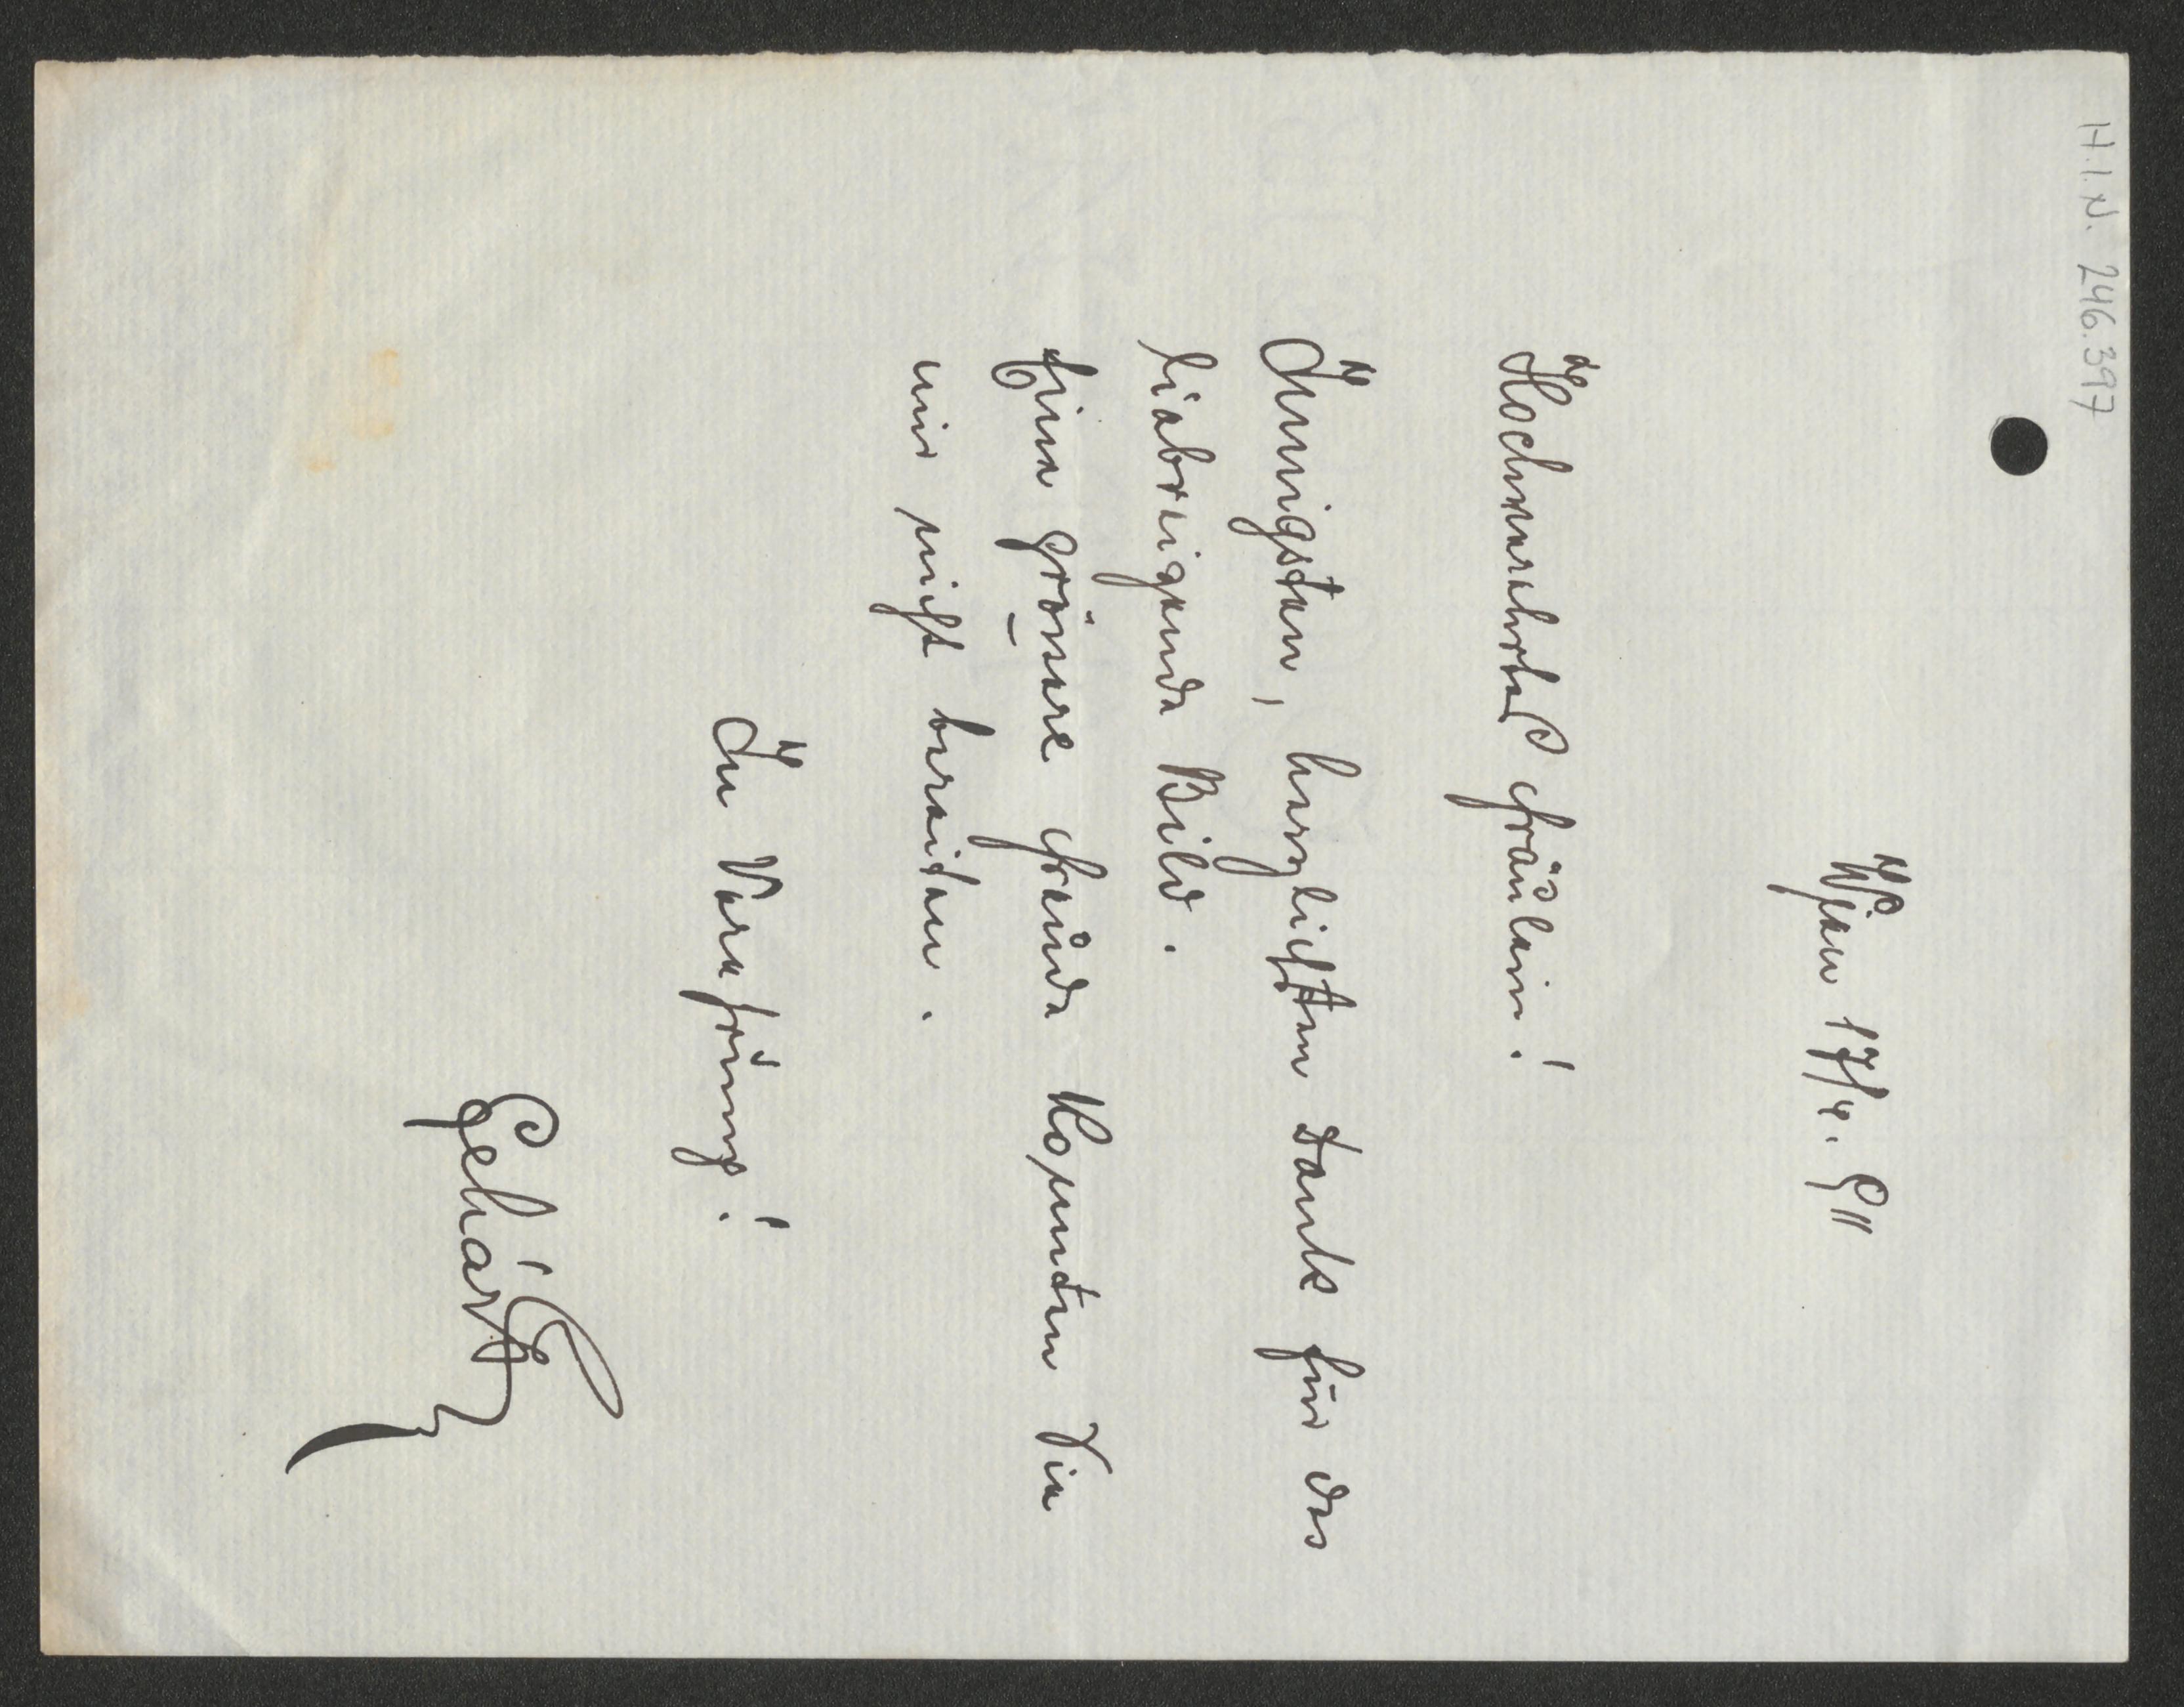 H.I.N. 246.397
Wien 17/4. 911
Hochverehrtes Fräulein!
Innigsten, herzlichsten Dank für das
liebreizende Bild.
Eine grössere Freude konnten Sie
mir nicht bereiten.
In Verehrung!
Lehár